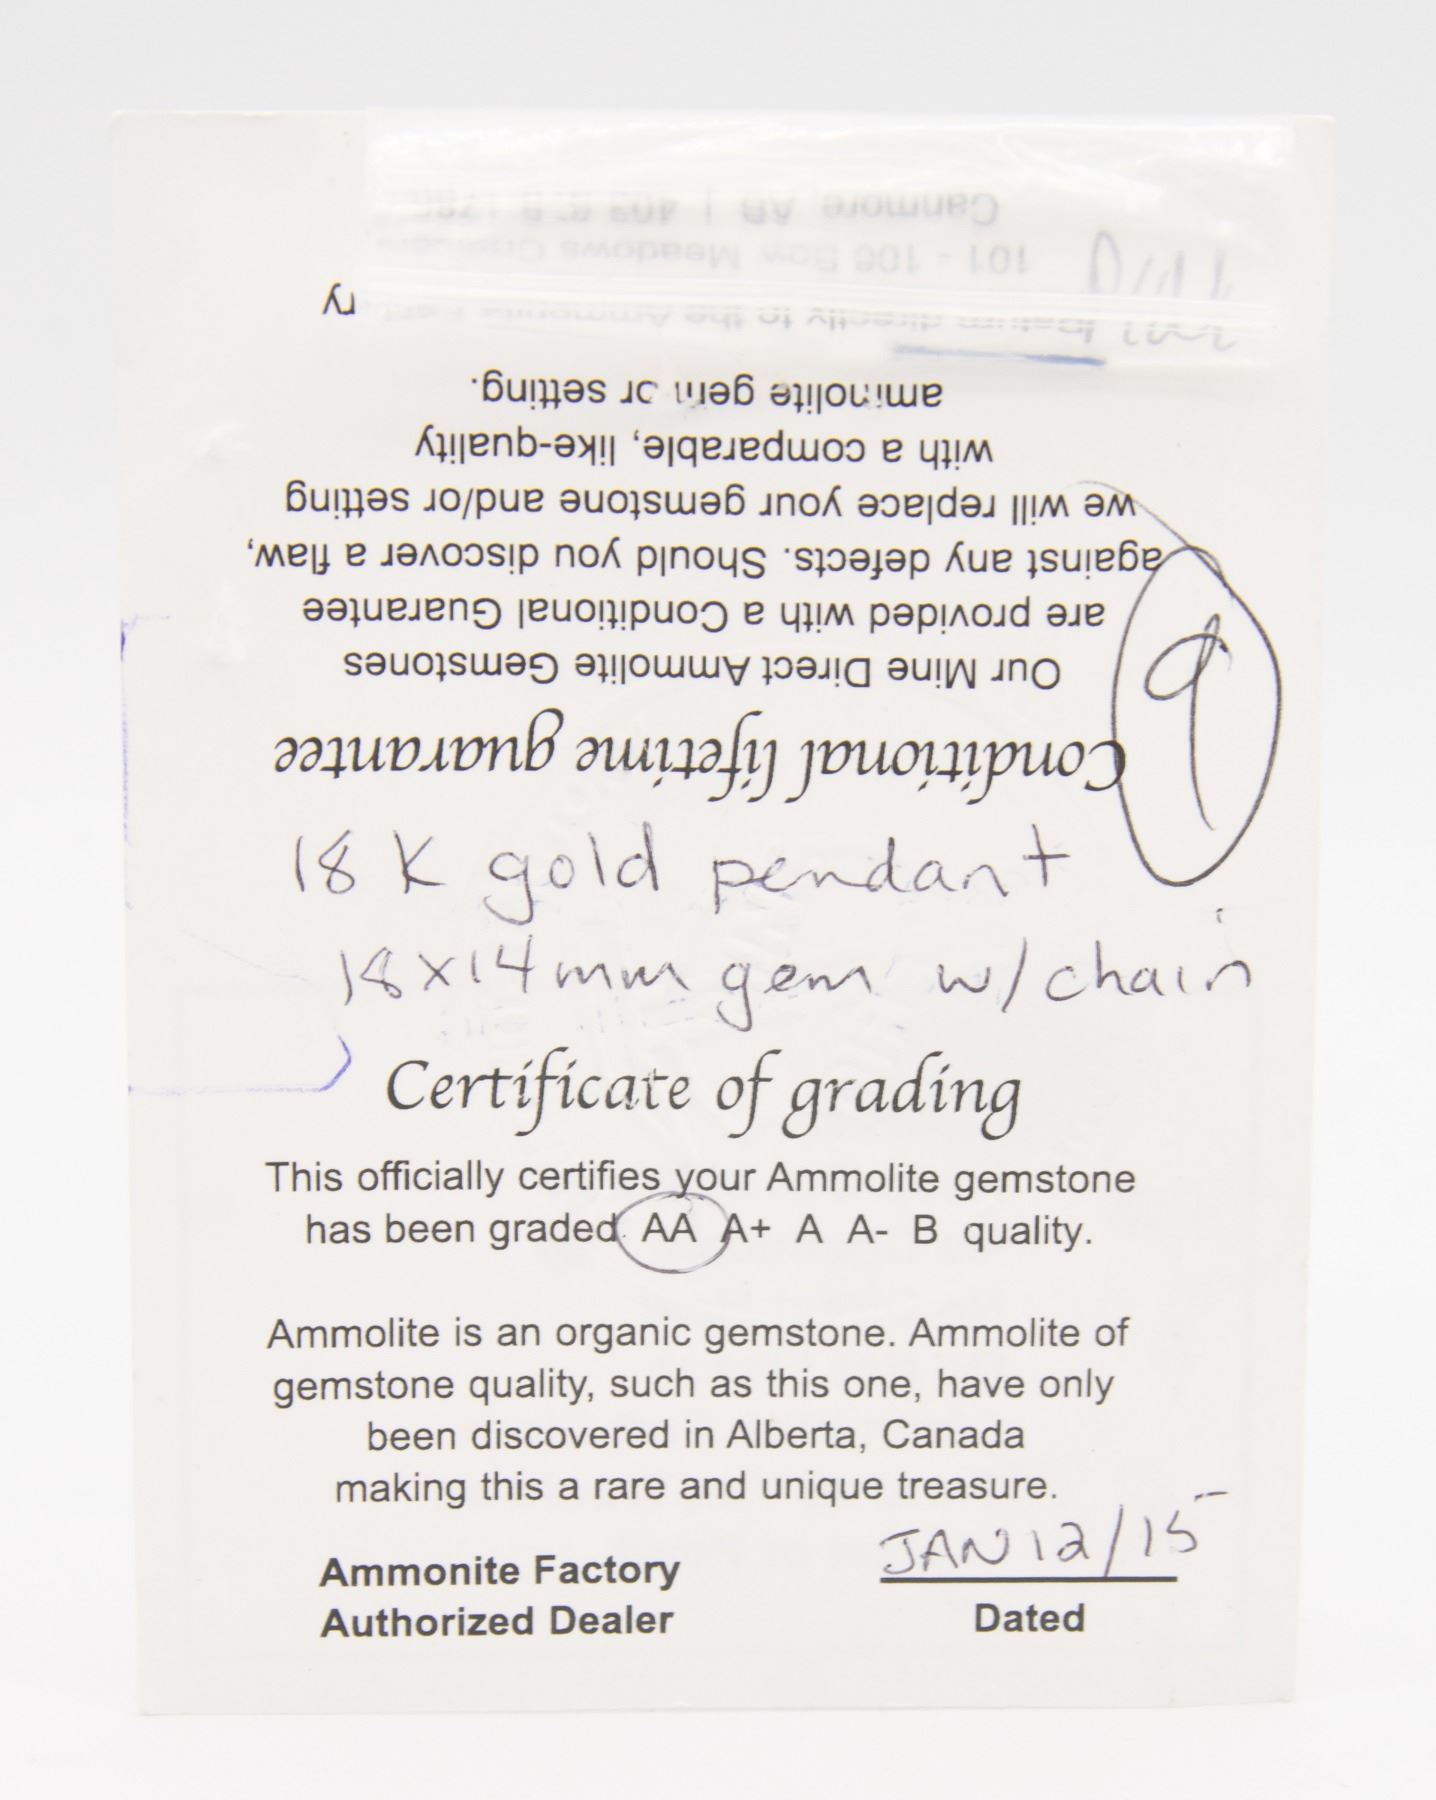 18K gold pendant
18x14mm gem w/chain
Certificate of grading
This officially certifies your Ammolite gemstone
has been graded AA A+ A A- B quality.
Ammolite is an organic gemstone. Ammolite of
gemstone quality, such as this one, have only
been discovered in Alberta, Canada
making this a rare and unique treasure.
Ammonite Factory
Authorized Dealer
JAN 12/15
Dated
9
Conditional lifetime guarantee
Our Mine Direct Ammolite Gemstones
are provided with a Conditional Guarantee
against any defects. Should you discover a flaw,
we will replace your gemstone and/or setting
with a comparable, like-quality
ammolite gem or setting.
Return directly to the Ammonite Factory
101 - 106 Bow Meadows
Canmore, AB | 403